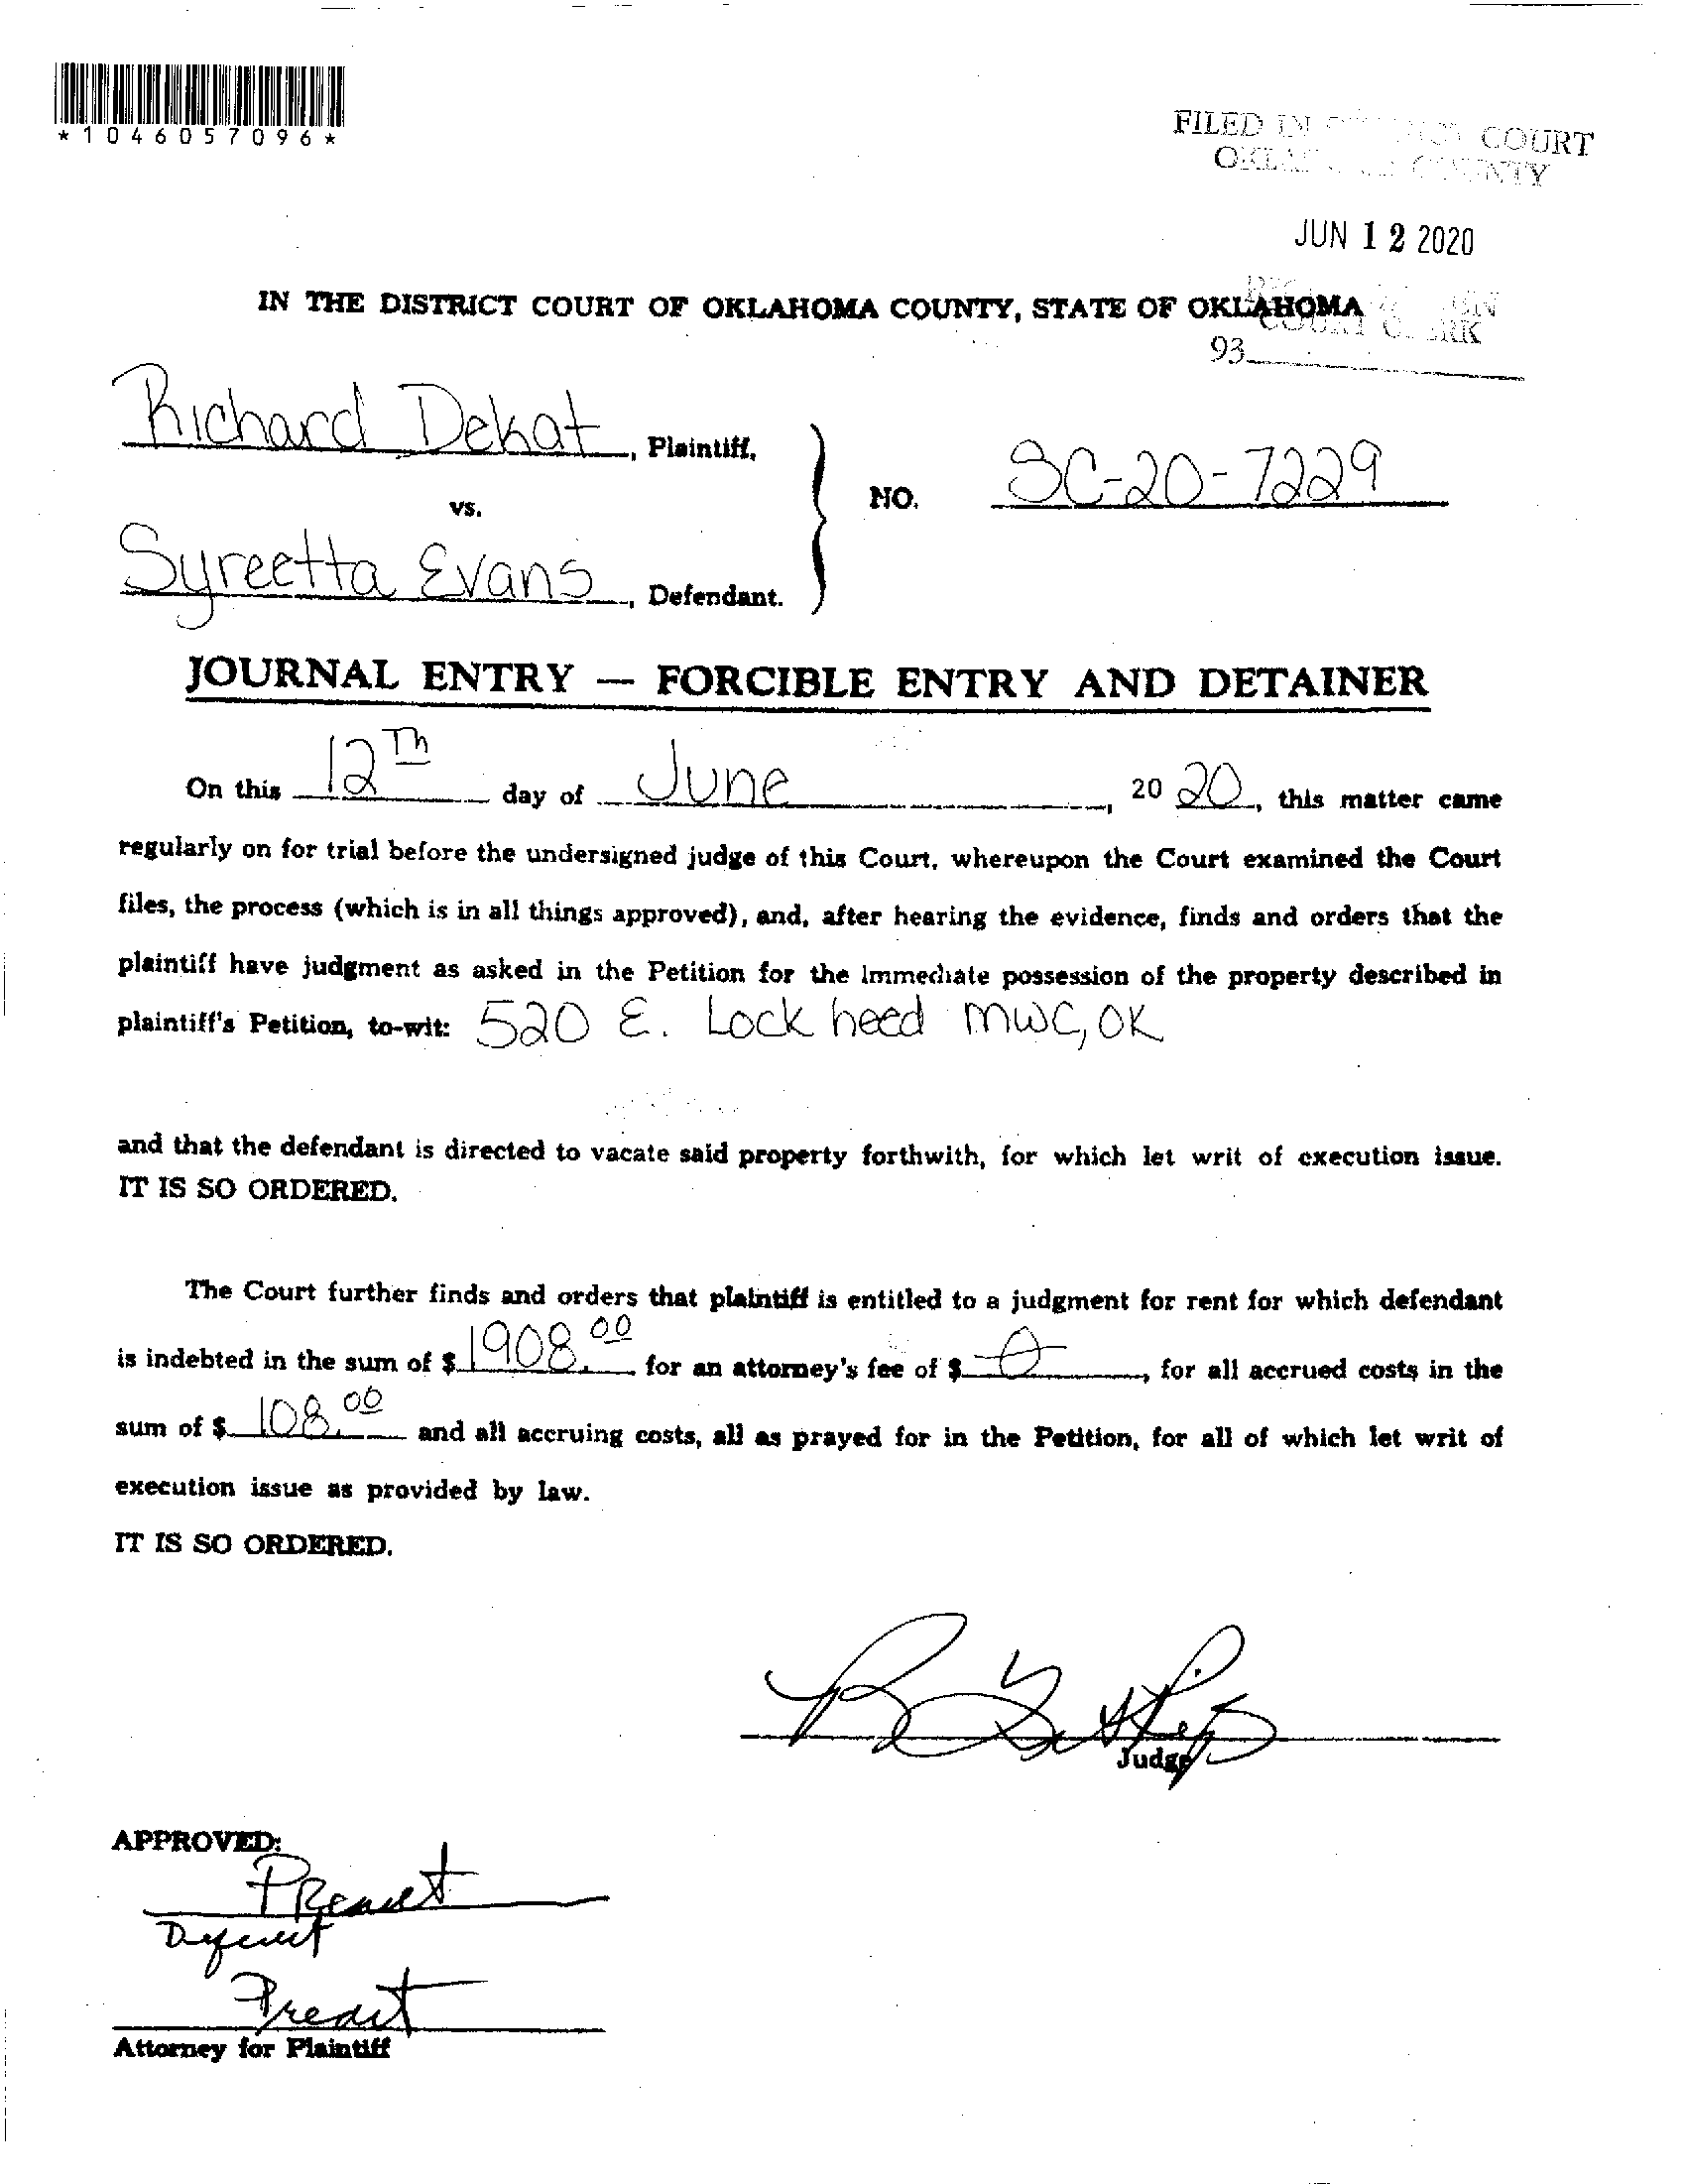 *1046057096*
FILED IN COURT
COUNTY
JUN 12 2020
IN THE DISTRICT COURT OF OKLAHOMA COUNTY, STATE OF OKLAHOMA
COURT CLERK
93
Richard Dekat, Plaintiff,
vs.
NO. SC-20-7229
Syreetta Evans, Defendant.
JOURNAL ENTRY — FORCIBLE ENTRY AND DETAINER
On this 12Th day of June, 20 20, this matter came
regularly on for trial before the undersigned judge of this Court, whereupon the Court examined the Court
files, the process (which is in all things approved), and, after hearing the evidence, finds and orders that the
plaintiff have judgment as asked in the Petition for the immediate possession of the property described in
plaintiff's Petition, to-wit: 520 E. Lockheed MWC, OK
and that the defendant is directed to vacate said property forthwith, for which let writ of execution issue.
IT IS SO ORDERED.
The Court further finds and orders that plaintiff is entitled to a judgment for rent for which defendant
is indebted in the sum of $ 1908.00 for an attorney's fee of $ 0, for all accrued costs in the
sum of $ 108.00 and all accruing costs, all as prayed for in the Petition, for all of which let writ of
execution issue as provided by law.
IT IS SO ORDERED.
Judge
APPROVED:
Attorney for Plaintiff